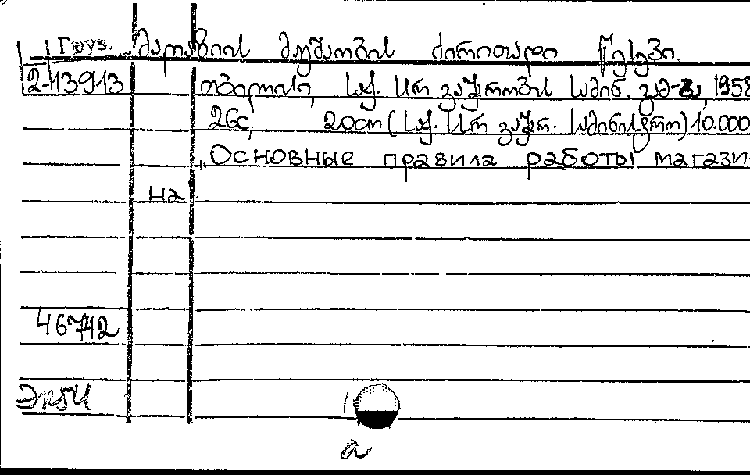 Груз. მაღაზიის მუშაობის ძირითადი წესები.
2-13913 თბილისი, საქ. სსრ ვაჭრობის სამინ. გამ-ბა, 1958
26с, 20см (საქ. სსრ ვაჭრ. სამინისტრო) 10.000
„Основные правила работы магази-
на
46742
а